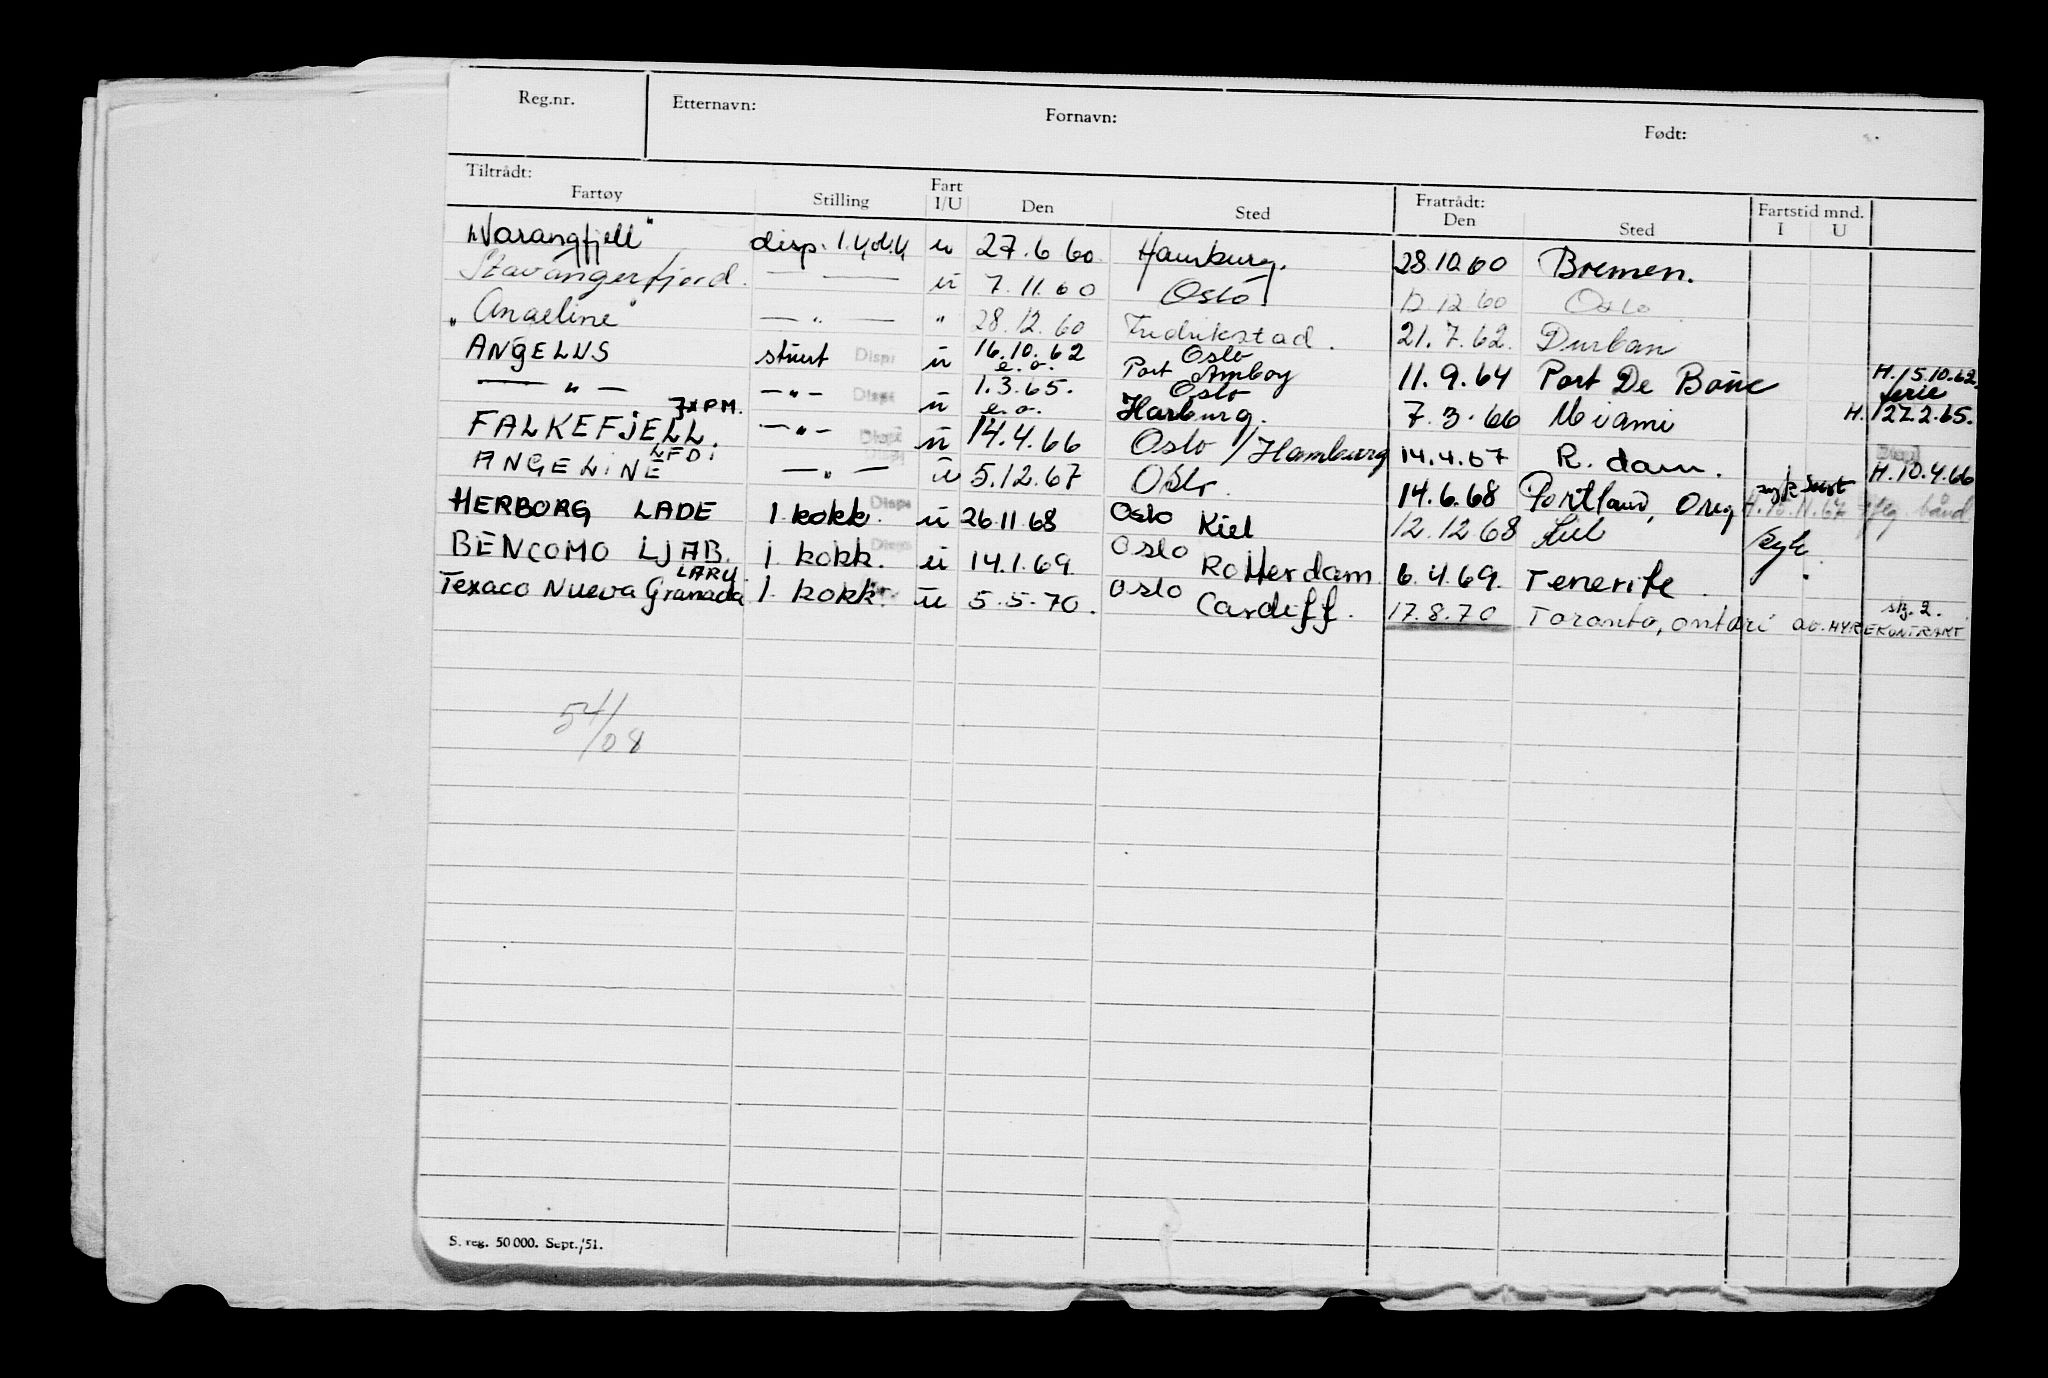 Reg.nr. Etternavn: Fornavn: Født:
Tiltrådt: Fratrådt: Fartstid mnd.
Fartøy Stilling Fart I/U Den Sted Den Sted I U
"Varangfjell" disp. u 27.6 60 Hamburg. 28.10.60 Bremen.
Stavangerfjord. — — u 7.11.60 Oslo 12.12.60 Oslo
"Angeline" — " — " 28.12.60 Fredrikstad. 21.7.62. Durban
ANGELUS stuert Disp. u 16.10.62 e.o. Oslo Port Amboy 11.9.64 Port De Bouc H. 15.10.62. ferie
— " — — " — Disp. u 1.3.65. e.o. Oslo Harburg. 7.3.66 Miami H. 27.2.65.
FALKEFJELL. JXPM. — " — Disp. u 14.4.66 Oslo / Hamburg 14.4.67 R.dam. H. 10.4.66
ANGELINE LFDI — " — u 5.12.67 Oslo. 14.6.68 Portland, Oreg
HERBORG LADE 1. kokk. Disp. u 26.11.68 Oslo Kiel 12.12.68 Kiel syk
BENCOMO LJAB. 1. kokk. Disp. u 14.1.69 Oslo Rotterdam 6.4.69. Tenerife.
Texaco Nueva Granada LARY. 1. kokk. u 5.5.70. Oslo Cardiff. 17.8.70 Toronto, Ontari ao. HYREKONTRAKT
54/08
S. reg. 50 000. Sept. '51.